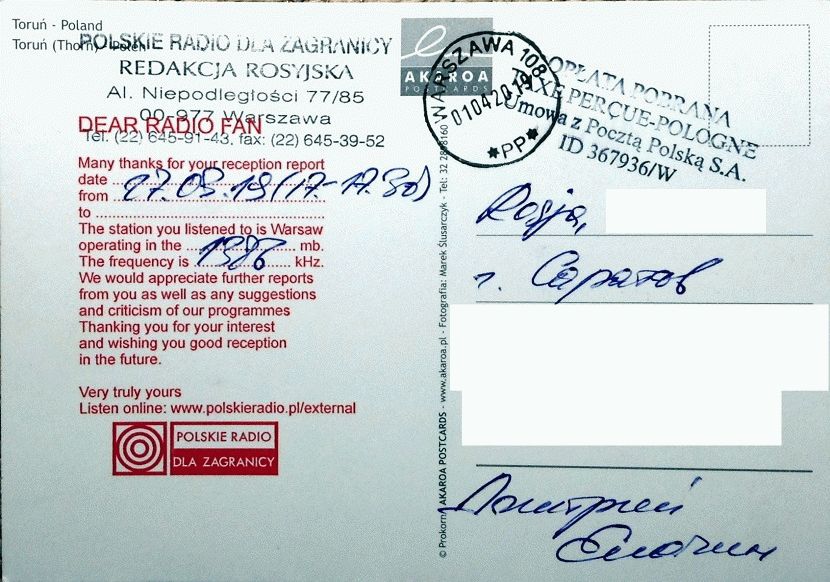 Toruń - Poland
Toruń (Thorn) - Polen
POLSKIE RADIO DLA ZAGRANICY
REDAKCJA ROSYJSKA
Al. Niepodległości 77/85
00-977 Warszawa
Tel. (22) 645-91-43, fax: (22) 645-39-52
DEAR RADIO FAN
Many thanks for your reception report
date
from 27.03.19 (17-17.30)
to
The station you listened to is Warsaw
operating in the mb.
The frequency is 1386 kHz.
We would appreciate further reports
from you as well as any suggestions
and criticism of our programmes
Thanking you for your interest
and wishing you good reception
in the future.
Very truly yours
Listen online: www.polskieradio.pl/external
POLSKIE RADIO
DLA ZAGRANICY
e
AKAROA
POSTCARDS
WARSZAWA 108
01042019
*PP*
OPŁATA POBRANA
TAXE PERÇUE-POLOGNE
Umowa z Pocztą Polską S.A.
ID 367936/W
© Prokorn/ AKAROA POSTCARDS - www.akaroa.pl - Fotografia: Marek Ślusarczyk - Tel: 32 2888160
Rosja,
г. Саратов
Дмитрий